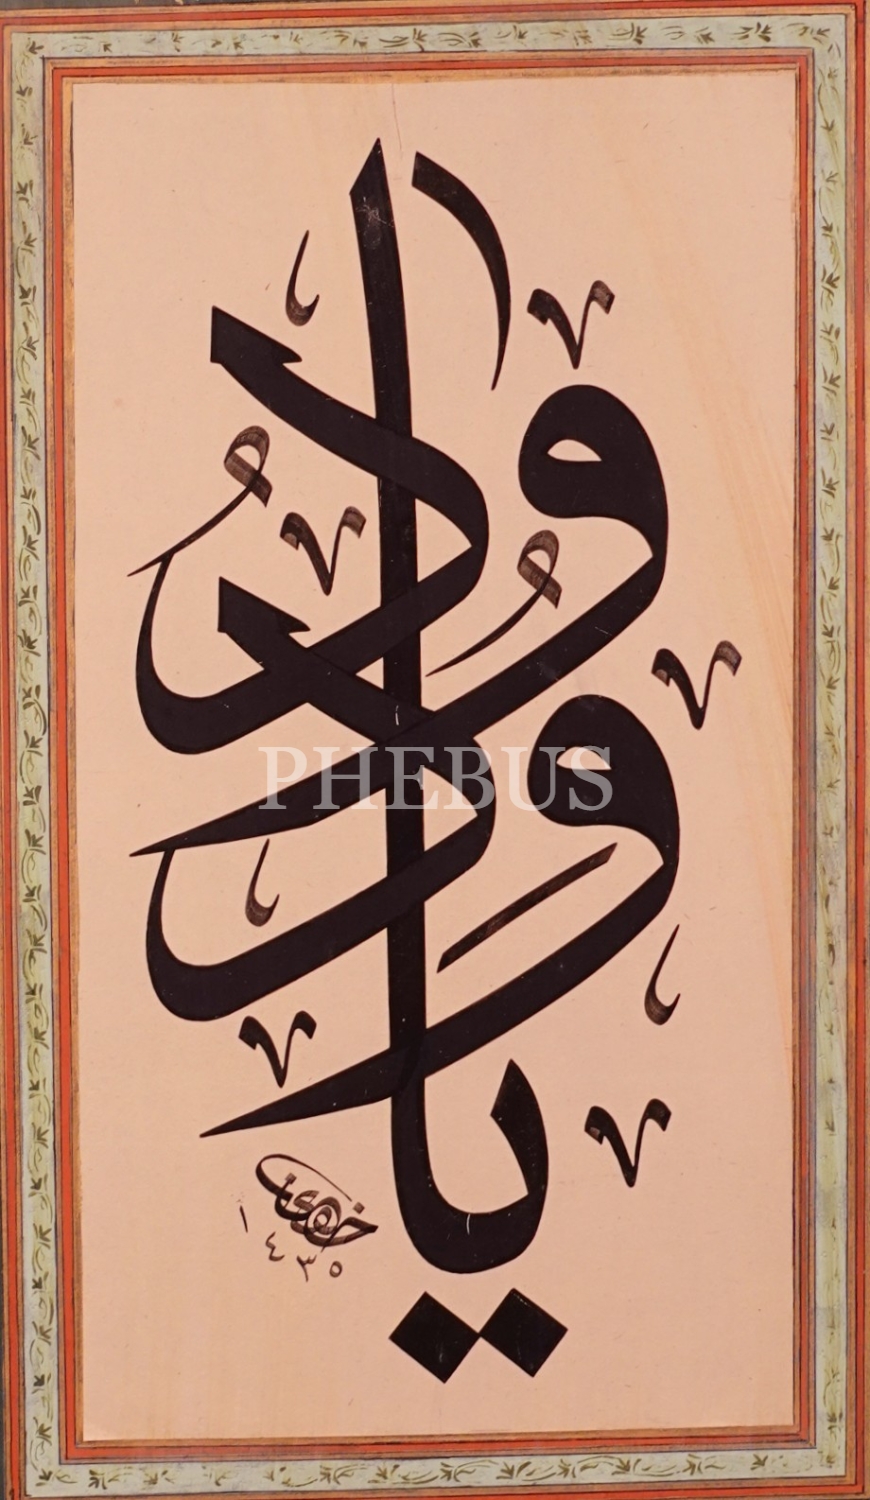 يَا وَدُودُ
PHEBUS
١٤٣٥